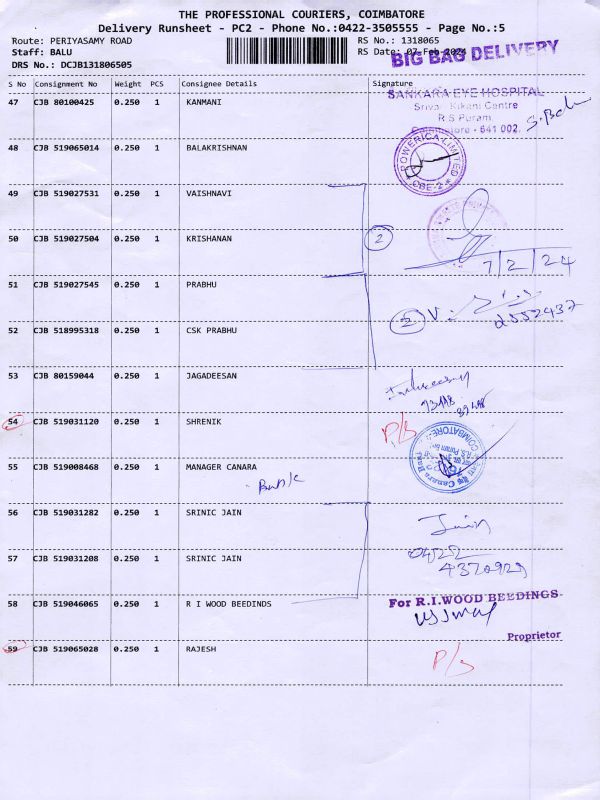 THE PROFESSIONAL COURIERS, COIMBATORE
Delivery Runsheet - PC2 - Phone No.:0422-3505555 - Page No.:5
Route: PERIYASAMY ROAD RS No.: 1318065
Staff: BALU RS Date: 07-Feb-2024
BIG BAG DELIVERY
DRS No.: DCJB131806505
S No Consignment No Weight PCS Consignee Details Signature
47 CJB 80100425 0.250 1 KANMANI
SANKARA EYE HOSPITAL
Srivari Kikani Centre
R.S Puram,
Coimbatore - 641 002.
48 CJB 519065014 0.250 1 BALAKRISHNAN
POWERICA LIMITED
CBE-2
49 CJB 519027531 0.250 1 VAISHNAVI
50 CJB 519027504 0.250 1 KRISHANAN
2
7/2/24
51 CJB 519027545 0.250 1 PRABHU
2 V.
2552437
52 CJB 518995318 0.250 1 CSK PRABHU
53 CJB 80159044 0.250 1 JAGADEESAN
54 CJB 519031120 0.250 1 SHRENIK
P/S
55 CJB 519008468 0.250 1 MANAGER CANARA
Bank
COIMBATORE
56 CJB 519031282 0.250 1 SRINIC JAIN
Jain
0422
4370929
57 CJB 519031208 0.250 1 SRINIC JAIN
58 CJB 519046065 0.250 1 R I WOOD BEEDINDS
For R.I.WOOD BEEDINGS
Proprietor
59 CJB 519065028 0.250 1 RAJESH
P/S